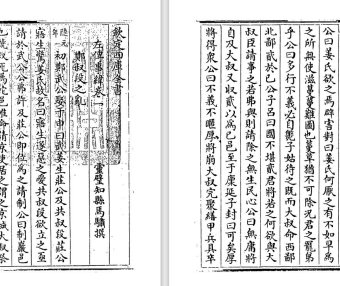 欽定四庫全書
左傳事緯卷一
靈璧知縣馬驌撰
鄭叔段之亂
隱元年初鄭武公娶于申曰武姜生莊公及共叔段莊公
寤生驚姜氏故名曰寤生遂惡之愛共叔段欲立之亟
請於武公公弗許及莊公即位為之請制公曰制巖邑
也虢叔死焉佗邑唯命請京使居之謂之京城大叔祭
公曰姜氏欲之焉辟害對曰姜氏何厭之有不如早為
之所無使滋蔓蔓難圖也蔓草猶不可除况君之寵弟
乎公曰多行不義必自斃子姑待之既而大叔命西鄙
北鄙貳於已公子吕曰國不堪貳君將若之何欲與大
叔臣請事之若弗與則請除之無生民心公曰無庸將
自及大叔又收貳以為已邑至于廩延子封曰可矣厚
將得衆公曰不義不暱厚將崩大叔完聚繕甲兵具卒